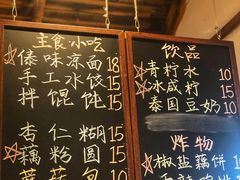 主食小吃
☆傣味凉面18
手工水饺15
拌馄饨15
杏仁糊10
☆藕粉圆10
饮品
☆青柠水10
☆冰咸柠15
泰国豆奶10
炸物
☆椒盐藕饼